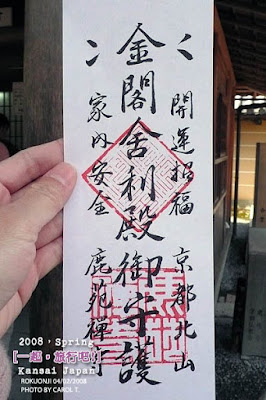 開運招福 京都北山
金閣舎利殿御守護
家内安全 鹿苑禅寺
2008，Spring
『一起，旅行吧!』
Kansai Japan
ROKUONJI 04/02/2008
PHOTO BY CAROL T.